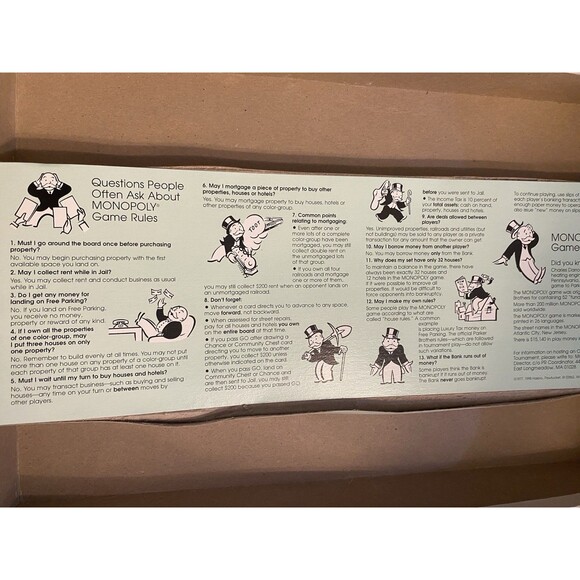 Questions People
Often Ask About
MONOPOLY®
Game Rules
1. Must I go around the board once before purchasing
property?
No. You may begin purchasing property with the first
available space you land on.
2. May I collect rent while in Jail?
Yes. You may collect rent and conduct business as usual
while in Jail.
3. Do I get any money for
landing on Free Parking?
No. If you land on Free Parking,
you receive no money,
property or reward of any kind.
4. If I own all the properties
of one color-group, may
I put three houses on only
one property?
No. Remember to build evenly at all times. You may not put
more than one house on any property of a color-group until
each property of that group has at least one house on it.
5. Must I wait until my turn to buy houses and hotels?
No. You may transact business—such as buying and selling
houses—any time on your turn or between moves by
other players.
6. May I mortgage a piece of property to buy other
properties, houses or hotels?
Yes. You may mortgage property to buy houses, hotels or
other properties of any color-group.
7. Common points
relating to mortgaging:
Even after one or
more lots of a complete
color-group have been
mortgaged, you may still
collect double rent on
the unmortgaged lots
of that group.
If you own all four
railroads and mortgage
one or more of them,
you may still collect $200 rent when an opponent lands on
an unmortgaged railroad.
8. Don't forget:
Whenever a card directs you to advance to any space,
move forward, not backward.
When assessed for street repairs,
pay for all houses and hotels you own
on the entire board at that time.
If you pass GO after drawing a
Chance or Community Chest card
directing you to move to another
property, you collect $200 unless
otherwise indicated on the card.
When you pass GO, land on
Community Chest or Chance and
are then sent to Jail, you may still
collect $200 because you passed GO
before you were sent to Jail.
The Income Tax is 10 percent of
your total assets: cash on hand,
property, houses and hotels.
9. Are deals allowed between
players?
Yes. Unimproved properties, railroads and utilities (but
not buildings) may be sold to any player as a private
transaction for any amount that the owner can get.
10. May I borrow money from another player?
No. You may borrow money only from the Bank.
11. Why does my set have only 32 houses?
To maintain a balance in the game, there have
always been exactly 32 houses and
12 hotels in the MONOPOLY game.
If it were possible to improve all
properties, it would be difficult to
force opponents into bankruptcy.
12. May I make my own rules?
Some people play the MONOPOLY
game according to what are
called "house rules." A common
example
is placing Luxury Tax money on
Free Parking. The official Parker
Brothers rules—which are followed
in tournament play—do not allow
such variations.
13. What if the Bank runs out of
money?
Some players think the Bank is
bankrupt if it runs out of money.
The Bank never goes bankrupt!
To continue playing, use slips of
each player's banking transact
enough paper money to operat
also issue "new" money on slips
MONO
Game
Did you know
Charles Darrow
Pennsylvania
The MONOPOLY game was
sold worldwide.
The MONOPOLY game is
printed in 26 languages.
The street names in the MONO
Atlantic City, New Jersey.
There is $15,140 in play money
For information on hosting an O
Tournament, please write to
East Longmeadow, MA 01028.